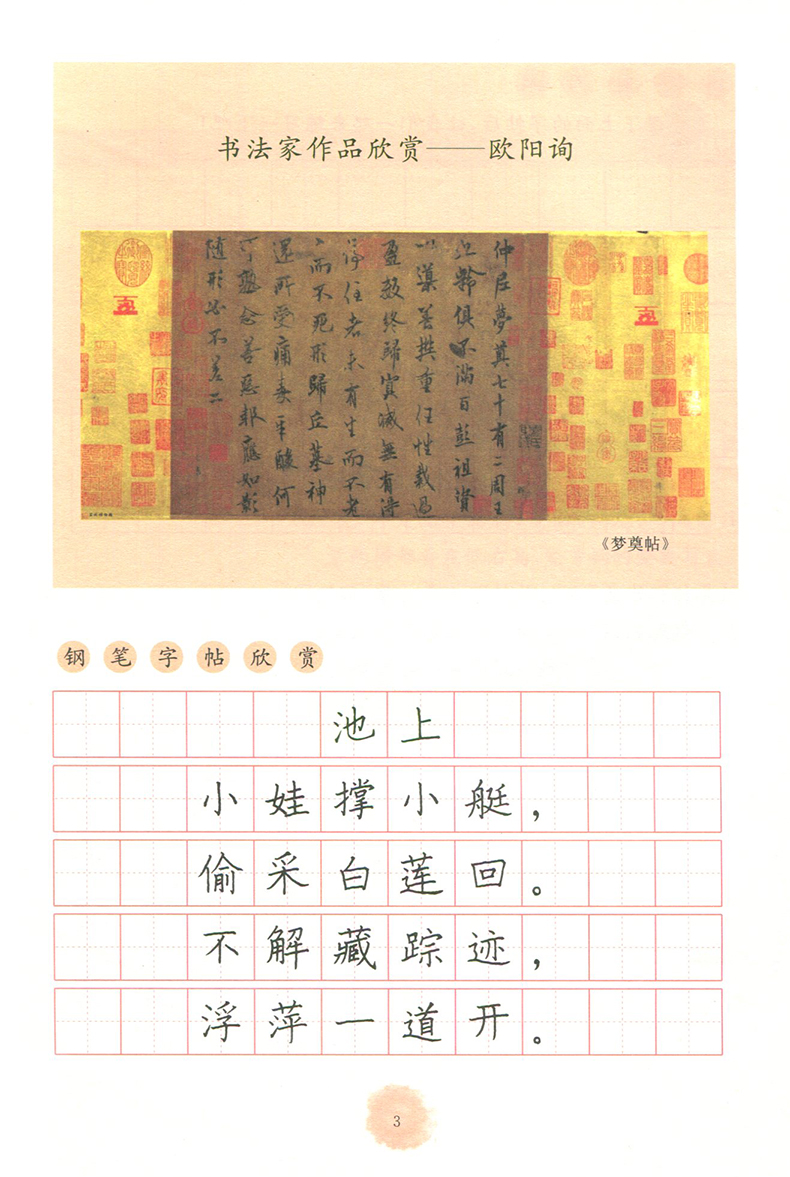 书法家作品欣赏——欧阳询
仲尼夢奠七十有二周王
九齡俱不滿百彭祖資
以導養樊重任性裁過
盈數終歸冥滅無有得
停住者未有生而不老
老而不死形歸丘墓神
還所受痛毒辛酸何
可熟念善惡報應如影
隨形必不差二
《梦奠帖》
钢笔字帖欣赏
池上
小娃撑小艇，
偷采白莲回。
不解藏踪迹，
浮萍一道开。
3